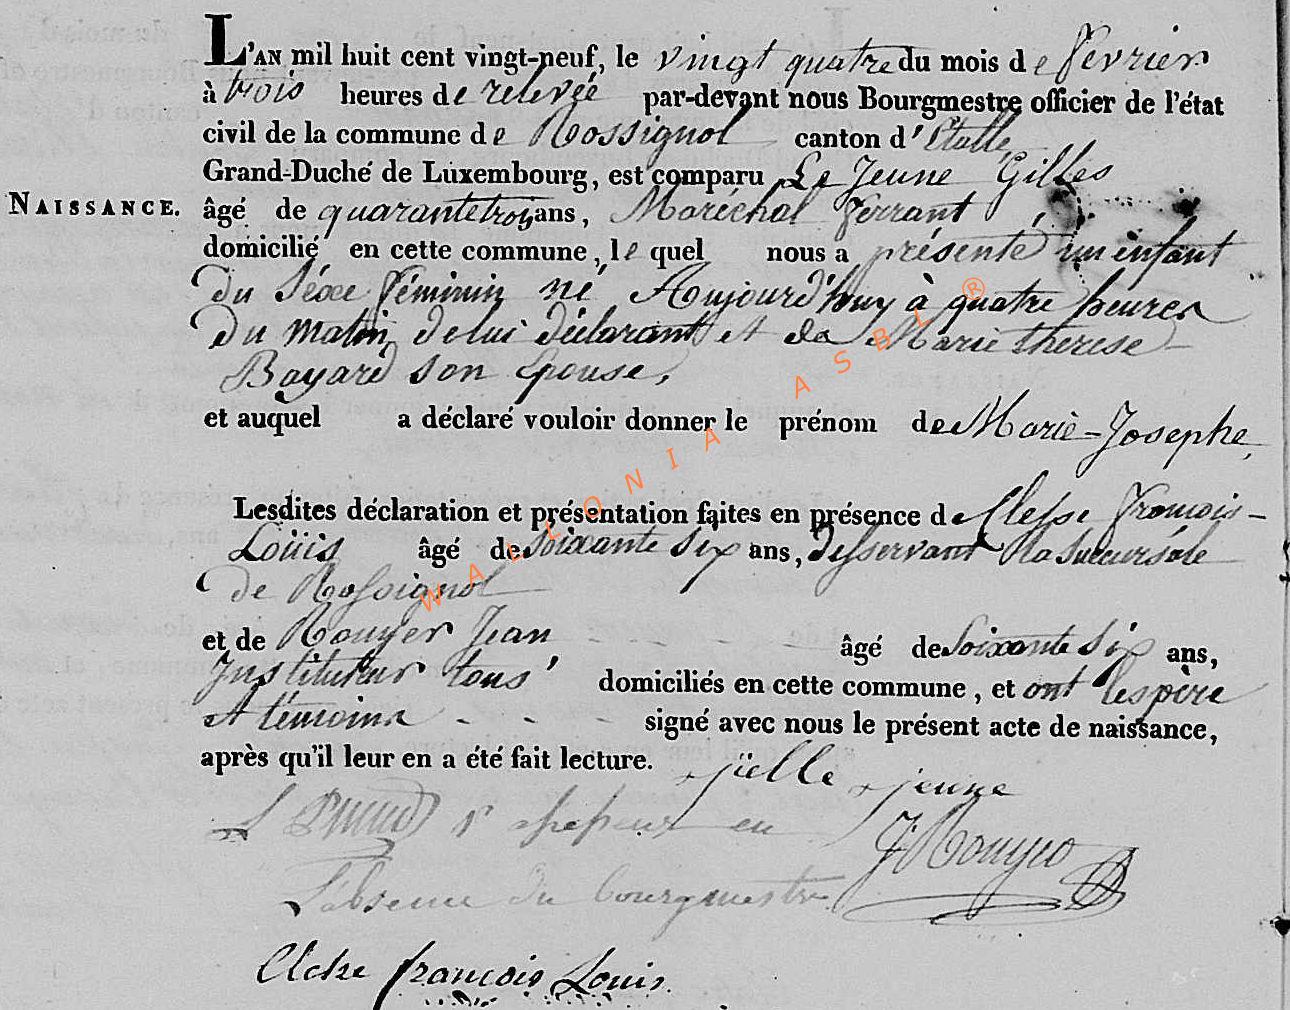 L'AN mil huit cent vingt-neuf, le vingt quatre du mois de fevrier
à trois heures de relevée par-devant nous Bourgmestre officier de l'état
civil de la commune de Rossignol canton d'Etalle
Grand-Duché de Luxembourg, est comparu Le Jeune Gilles
NAISSANCE. âgé de quarante trois ans, Maréchal ferrant
domicilié en cette commune, le quel nous a présenté un enfant
du Séxe féminin né Aujourd'huy à quatre heures
du matin de lui déclarant et de Marie therese
Bayard son Epouse,
et auquel a déclaré vouloir donner le prénom de Marie-Josephe,
Lesdites déclaration et présentation faites en présence de François-
Loüis âgé de Soixante Six ans, desservant la Succursale
de Rossignol
et de Rouyer Jean âgé de Soixante Six ans,
Instituteur tous domiciliés en cette commune, et ont les père
et témoins - - - signé avec nous le présent acte de naissance,
après qu'il leur en a été fait lecture.
jeune
en J Rouyer
L'absence du bourgmestre
françois Louis
WALLONIA ASBL ®